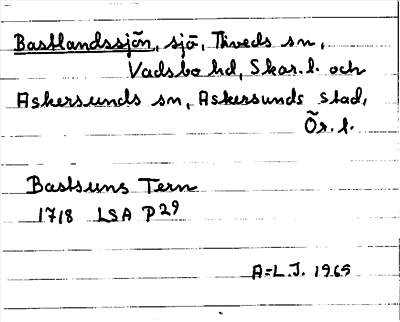 Bastlandssjön, sjö, Tiveds sn,
Vadsbo hd, Skar. l. och
Askersunds sn, Askersunds stad,
Ör. l.
Bastsuns Tern
1718 LSA P29
A=L.J. 1965